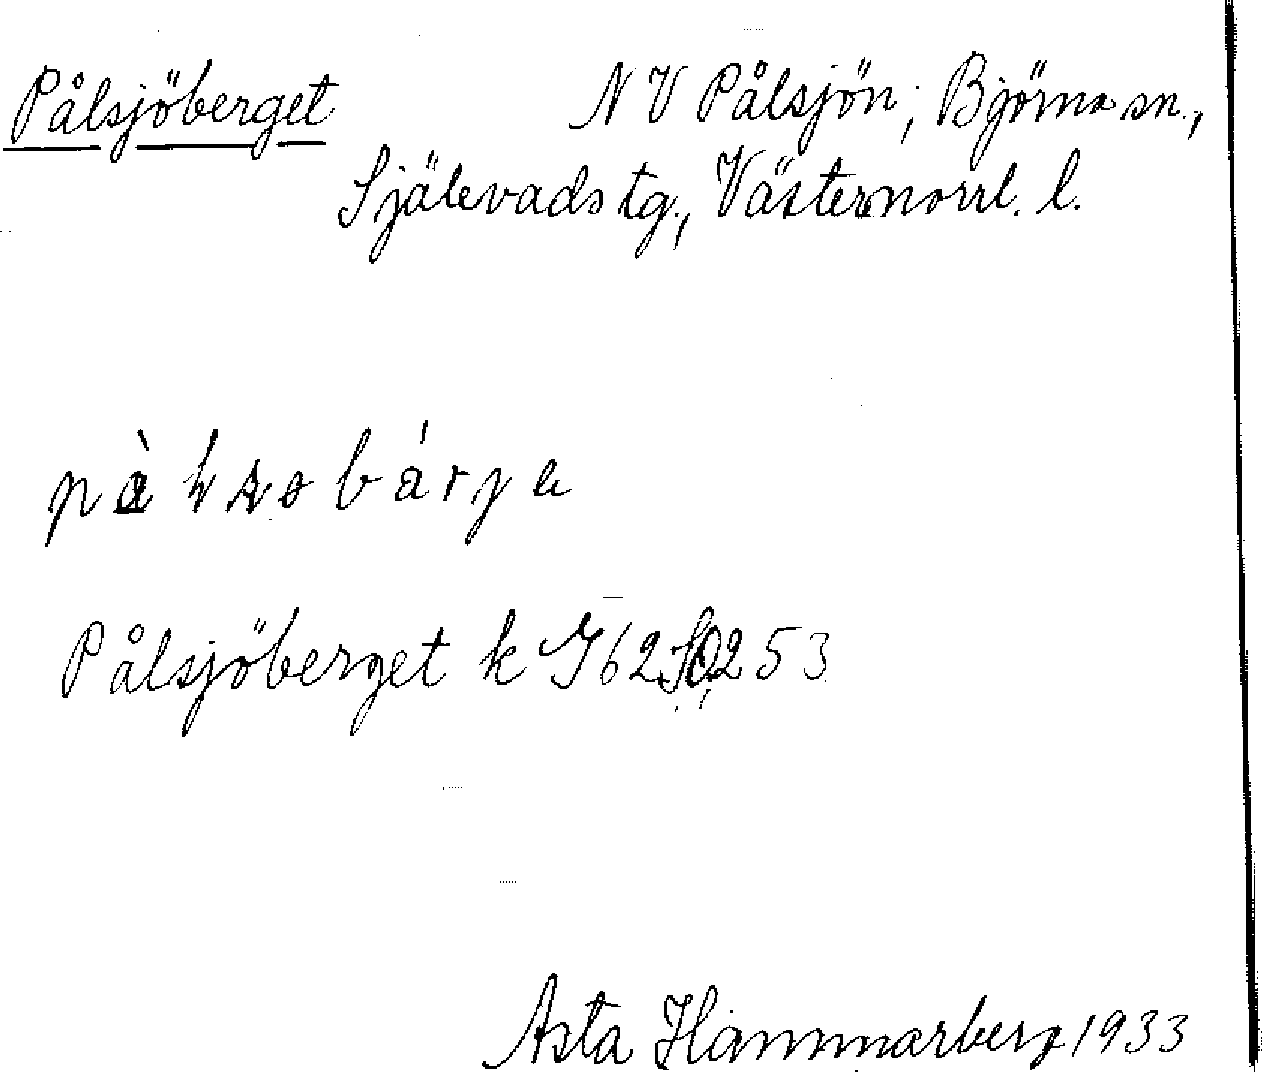 Pålsjöberget NV Pålsjön; Björna sn.,
Själevads tg., Västernorrl. l.
Pålsjöberget k
Asta Hammarberg 1933